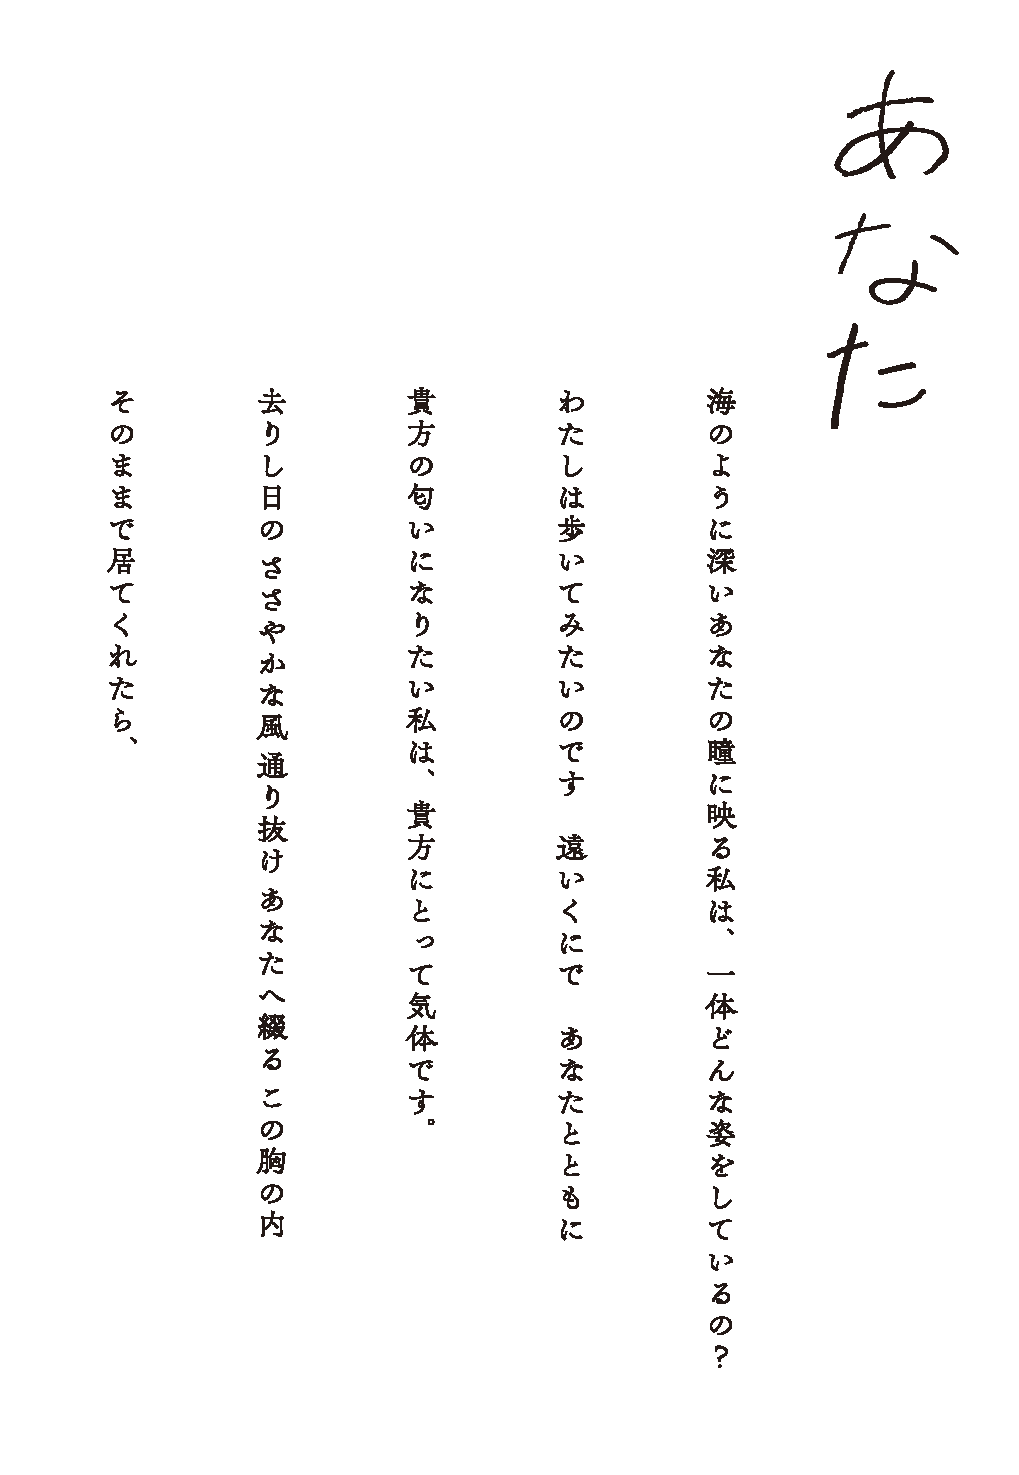 あなた
海のように深いあなたの瞳に映る私は、一体どんな姿をしているの？
わたしは歩いてみたいのです　遠いくにで　あなたとともに
貴方の匂いになりたい私は、貴方にとって気体です。
去りし日の ささやかな風 通り抜け あなたへ綴る この胸の内
そのままで居てくれたら、